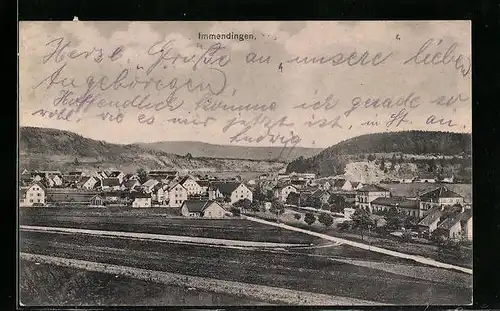 Immendingen.
Herzl. Grüße an unsere lieben
Angehörigen,
Hoffendlich komme ich gerade so
wohl, wie es mir jetzt ist, in St. an
Ludwig